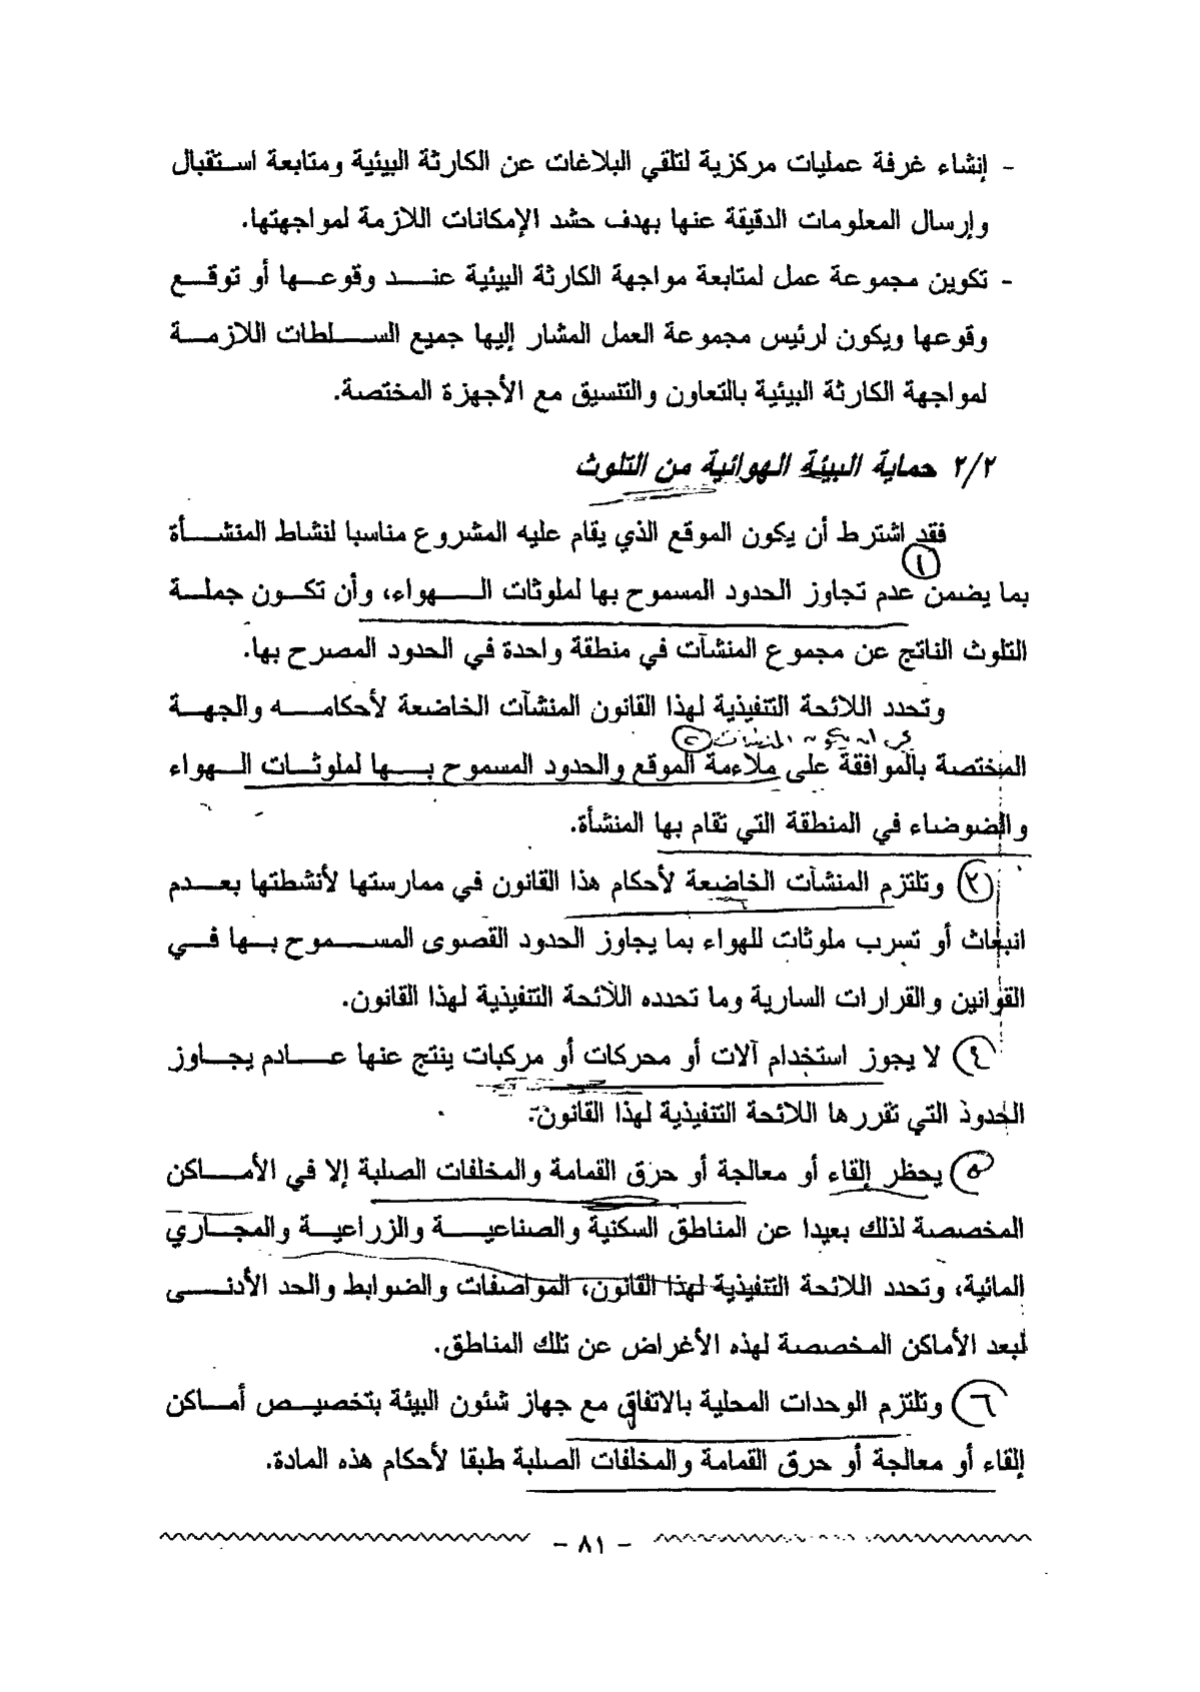 - إنشاء غرفة عمليات مركزية لتلقي البلاغات عن الكارثة البيئية ومتابعة استقبال
وإرسال المعلومات الدقيقة عنها بهدف حشد الإمكانات اللازمة لمواجهتها.
- تكوين مجموعة عمل لمتابعة مواجهة الكارثة البيئية عند وقوعها أو توقع
وقوعها ويكون لرئيس مجموعة العمل المشار إليها جميع السلطات اللازمة
لمواجهة الكارثة البيئية بالتعاون والتنسيق مع الأجهزة المختصة.
٢/٢ حماية البيئة الهوائية من التلوث
فقد اشترط أن يكون الموقع الذي يقام عليه المشروع مناسبا لنشاط المنشأة
١
بما يضمن عدم تجاوز الحدود المسموح بها لملوثات الهواء، وأن تكون جملة
التلوث الناتج عن مجموع المنشآت في منطقة واحدة في الحدود المصرح بها.
وتحدد اللائحة التنفيذية لهذا القانون المنشآت الخاضعة لأحكامه والجهة
المختصة بالموافقة على ملاءمة الموقع والحدود المسموح بها لملوثات الهواء
والضوضاء في المنطقة التي تقام بها المنشأة.
٢ وتلتزم المنشآت الخاضعة لأحكام هذا القانون في ممارستها لأنشطتها بعدم
انبعاث أو تسرب ملوثات للهواء بما يجاوز الحدود القصوى المسموح بها في
القوانين والقرارات السارية وما تحدده اللائحة التنفيذية لهذا القانون.
٤ لا يجوز استخدام آلات أو محركات أو مركبات ينتج عنها عادم يجاوز
الحدود التي تقررها اللائحة التنفيذية لهذا القانون.
٥ يحظر إلقاء أو معالجة أو حرق القمامة والمخلفات الصلبة إلا في الأماكن
المخصصة لذلك بعيدا عن المناطق السكنية والصناعية والزراعية والمجاري
المائية، وتحدد اللائحة التنفيذية لهذا القانون، المواصفات والضوابط والحد الأدنى
لبعد الأماكن المخصصة لهذه الأغراض عن تلك المناطق.
٦ وتلتزم الوحدات المحلية بالاتفاق مع جهاز شئون البيئة بتخصيص أماكن
إلقاء أو معالجة أو حرق القمامة والمخلفات الصلبة طبقا لأحكام هذه المادة.
- ٨١ -